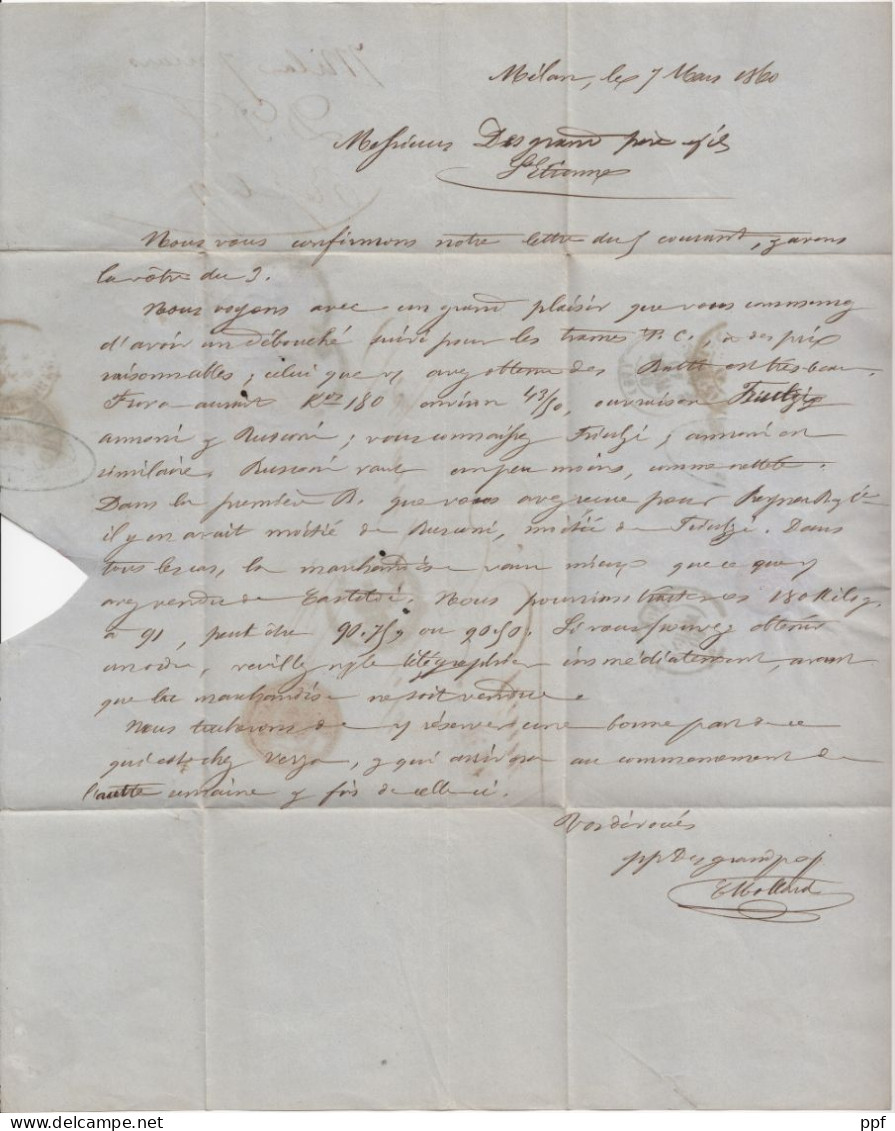 Milan, le 7 Mars 1860
Messieurs Desgrand pere & fils
St Etienne
Nous vous confirmons notre lettre du 5 courant, & avons
la vôtre du 3.
Nous voyons avec un grand plaisir que vous commencez
d'avoir un débouché suivi pour les trames B. C., à des prix
raisonnables ; celui que vs avez obtenu des est tres beau.
aurait Kos 180 environ 43/50, ouvraison Triulzi
& Rusconi ; vous connaissez Triulzi ; est
similaire. Rusconi vaut un peu moins, comme netteté.
Dans la première B. que vous avez reçue pour
il y en avait moitié de Rusconi, moitié de Triulzi. Dans
tous les cas, la marchandise vaut mieux que ce que vs
avez vendu de . Nous pourrions traiter ces 180 Kilog.
à 91, peut être 90.75 ou 90.50. Si vous pouvez obtenir
un ordre, veuillez ns le télégraphier immédiatement, avant
que la marchandise ne soit vendue.
Nous tacherons de vs réserver une bonne part de ce
qui est chez Verza, & qui arrivera au commencement de
l'autre semaine & fin de celle ci.
Vos dévoués
pp Desgrand p & f